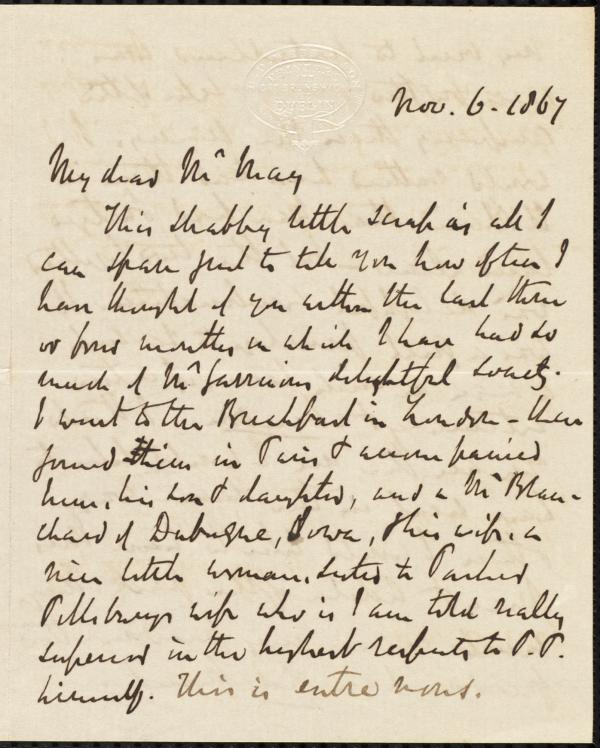 DUBLIN
Nov. 6. 1867
My dear Mr May
This shabby little scrap is all I
can spare just to tell you how often I
have thought of you within the last three
or four months in which I have had so
much of Mr Garrisons delightful society.
I went to the Breakfast in London - then
joined them in Paris & accompanied
him, his son & daughter, and a Mr Blan-
chard of Dubuque, Iowa, & his wife, a
nice little woman, sister to Parker
Pillsburys wife who is I am told really
superior in the highest respects to P.P.
himself. This is entre nous.